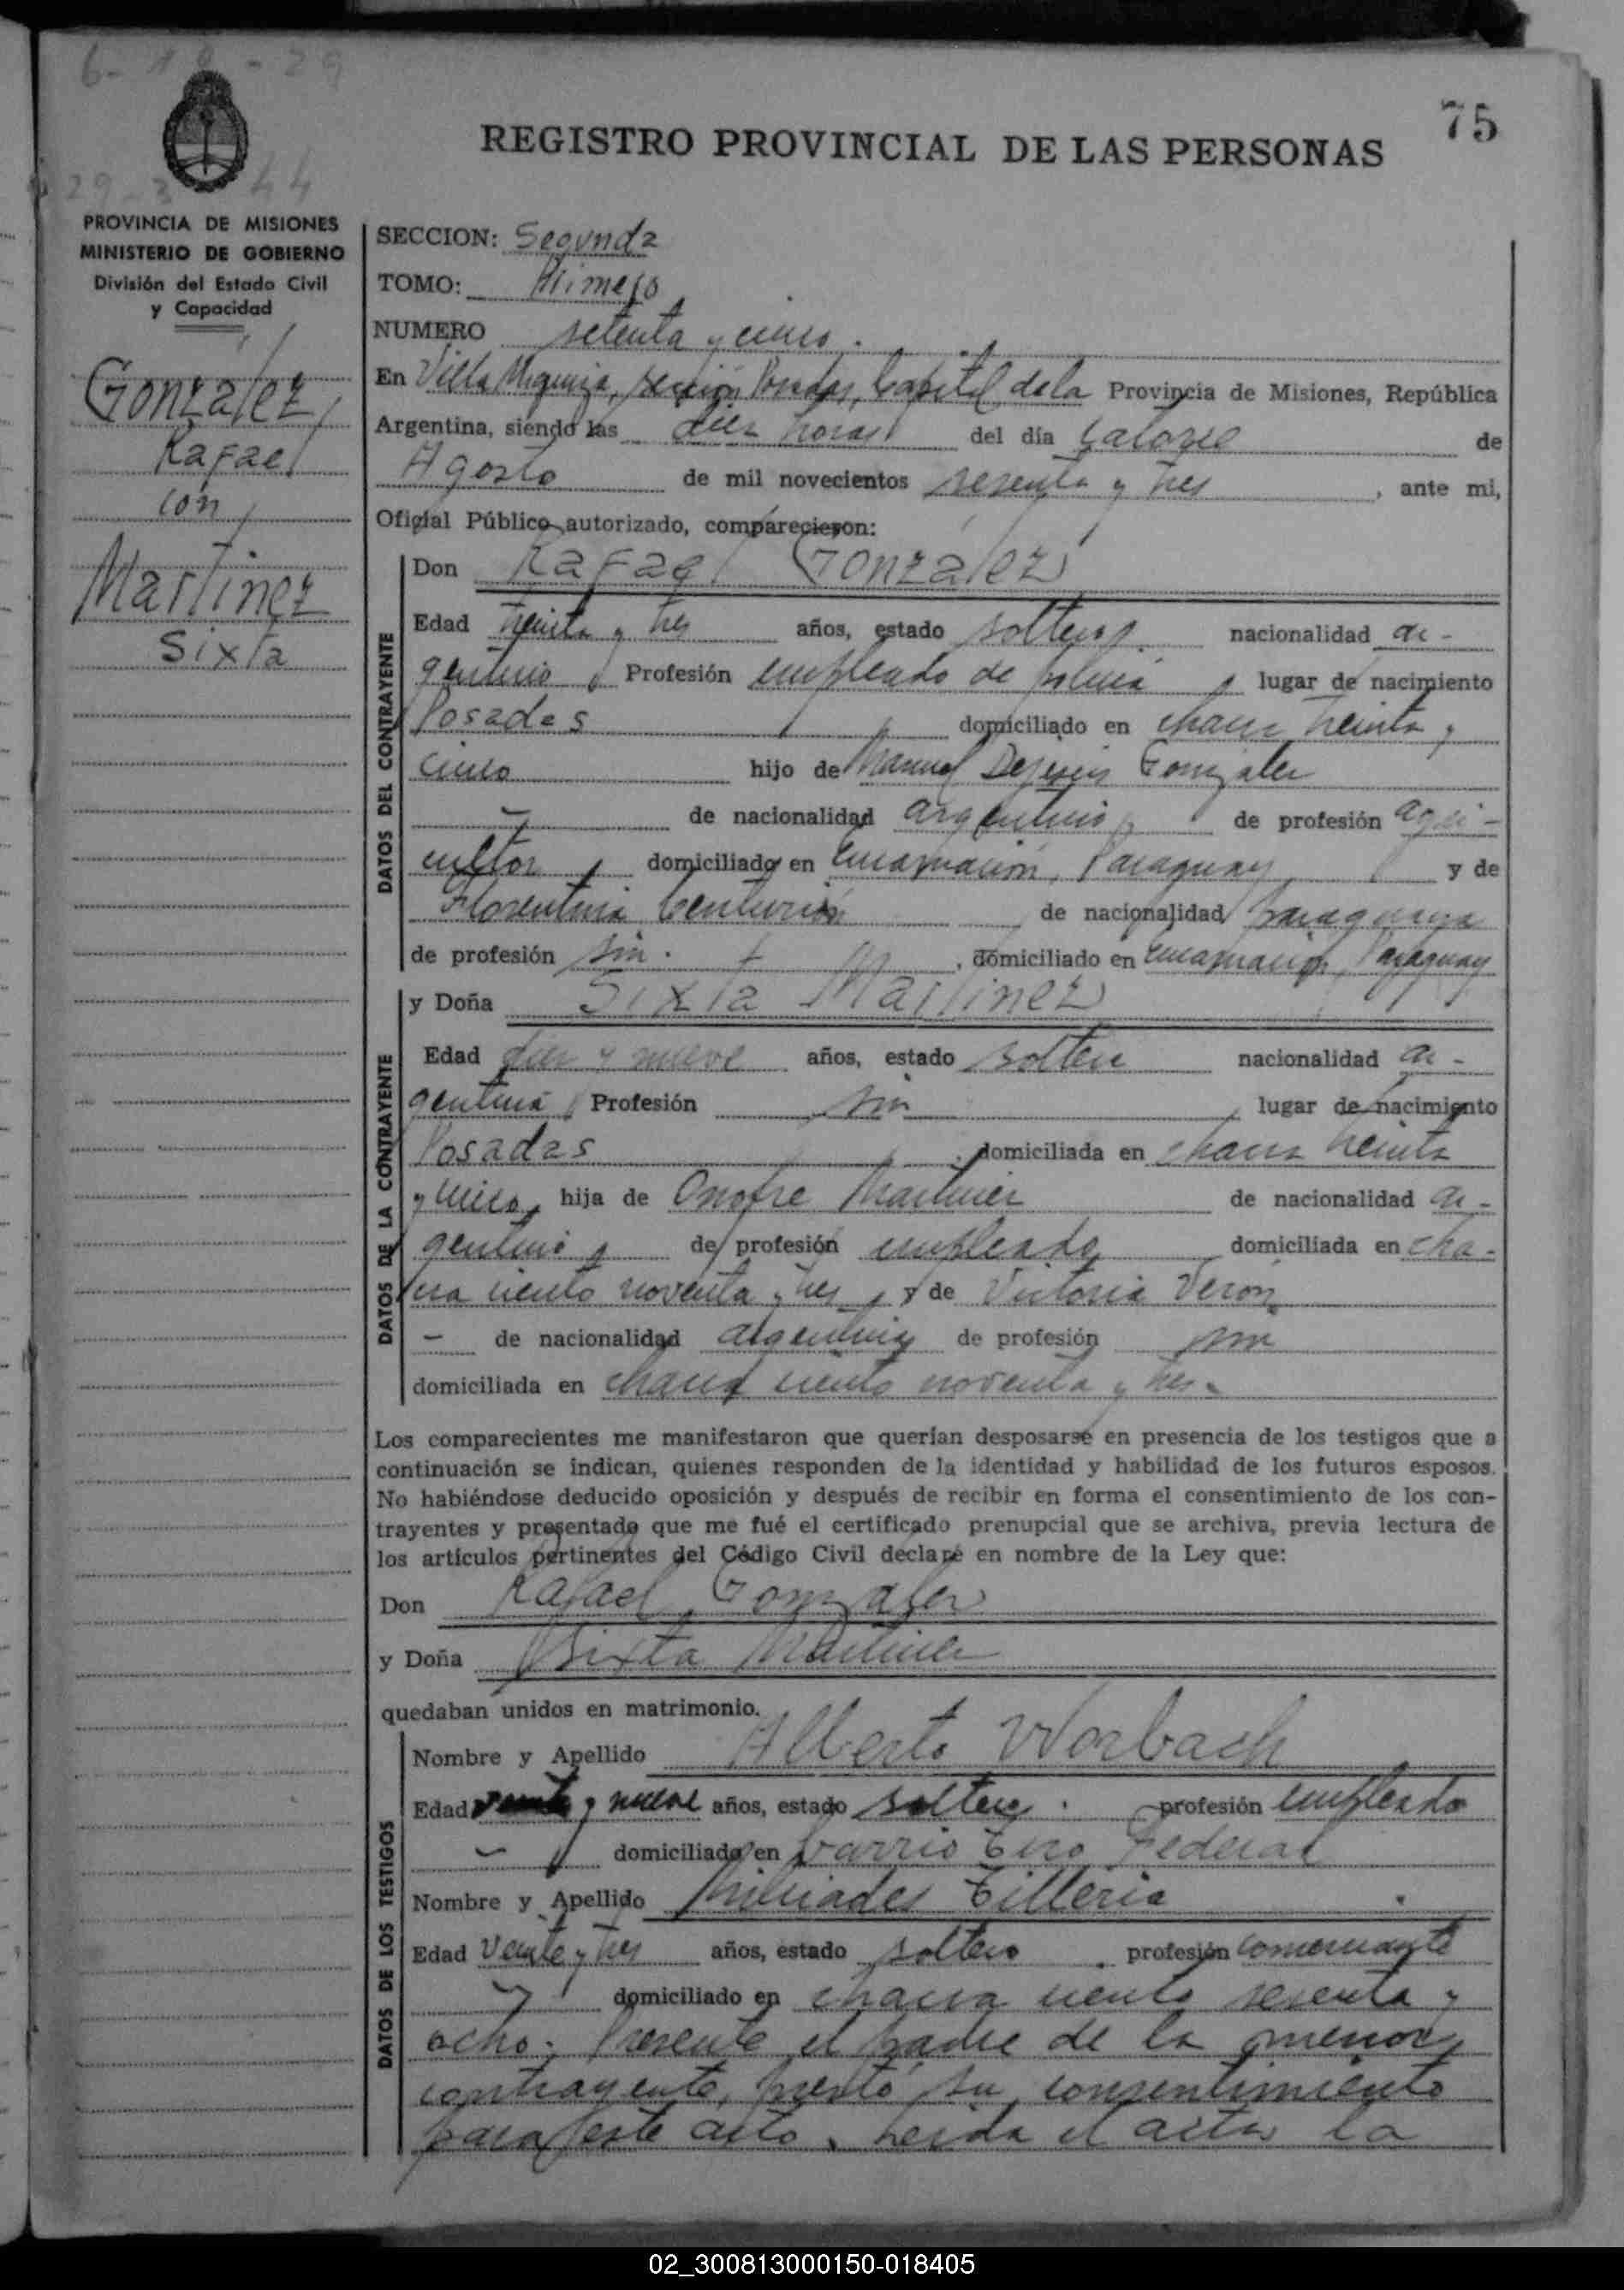 6-10-29
75
REGISTRO PROVINCIAL DE LAS PERSONAS
29-3 44
PROVINCIA DE MISIONES
MINISTERIO DE GOBIERNO
División del Estado Civil
y Capacidad
Gonzalez
Rafael
con
Martinez
Sixta
SECCION: Segunda
TOMO: Primero
NUMERO setenta y cinco.
En Villa Urquiza, sección Posadas, Capital de la Provincia de Misiones, República
Argentina, siendo las diez horas del día catorce de
Agosto de mil novecientos sesenta y tres, ante mi,
Oficial Público autorizado, comparecieron:
DATOS DEL CONTRAYENTE
Don Rafael Gonzalez
Edad treinta y tres años, estado soltero, nacionalidad ar-
gentino, Profesión empleado de policia, lugar de nacimiento
Posadas domiciliado en chacra treinta y
cinco hijo de Manuel Dejesús Gonzalez
- de nacionalidad argentino de profesión agri-
cultor, domiciliado en Encarnación, Paraguay y de
Florentina Centurión de nacionalidad paraguaya
de profesión sin. , domiciliado en Encarnación, Paraguay
DATOS DE LA CONTRAYENTE
y Doña Sixta Martinez
Edad diez y nueve años, estado soltera nacionalidad ar-
gentina, Profesión sin, lugar de nacimiento
Posadas, domiciliada en chacra treinta
y cinco, hija de Onofre Martinez de nacionalidad ar-
gentino, de profesión empleado domiciliada en cha-
cra ciento noventa y tres, y de Victoria Verón
- de nacionalidad argentina de profesión sin
domiciliada en chacra ciento noventa y tres.
Los comparecientes me manifestaron que querían desposarse en presencia de los testigos que a
continuación se indican, quienes responden de la identidad y habilidad de los futuros esposos.
No habiéndose deducido oposición y después de recibir en forma el consentimiento de los con-
trayentes y presentado que me fué el certificado prenupcial que se archiva, previa lectura de
los artículos pertinentes del Código Civil declaré en nombre de la Ley que:
Don Rafael Gonzalez
y Doña Sixta Martinez
quedaban unidos en matrimonio.
DATOS DE LOS TESTIGOS
Nombre y Apellido Alberto Worbach
Edad veinte y nueve años, estado soltero. profesión empleado
- domiciliado en barrio Tiro Federal
Nombre y Apellido Milciades Tilleria
Edad veinte y tres años, estado soltero. profesión comerciante
- domiciliado en chacra ciento sesenta y
ocho. Presente el padre de la menor
contrayente, prestó su consentimiento
para este acto. Leida el acta, la
02_300813000150-018405